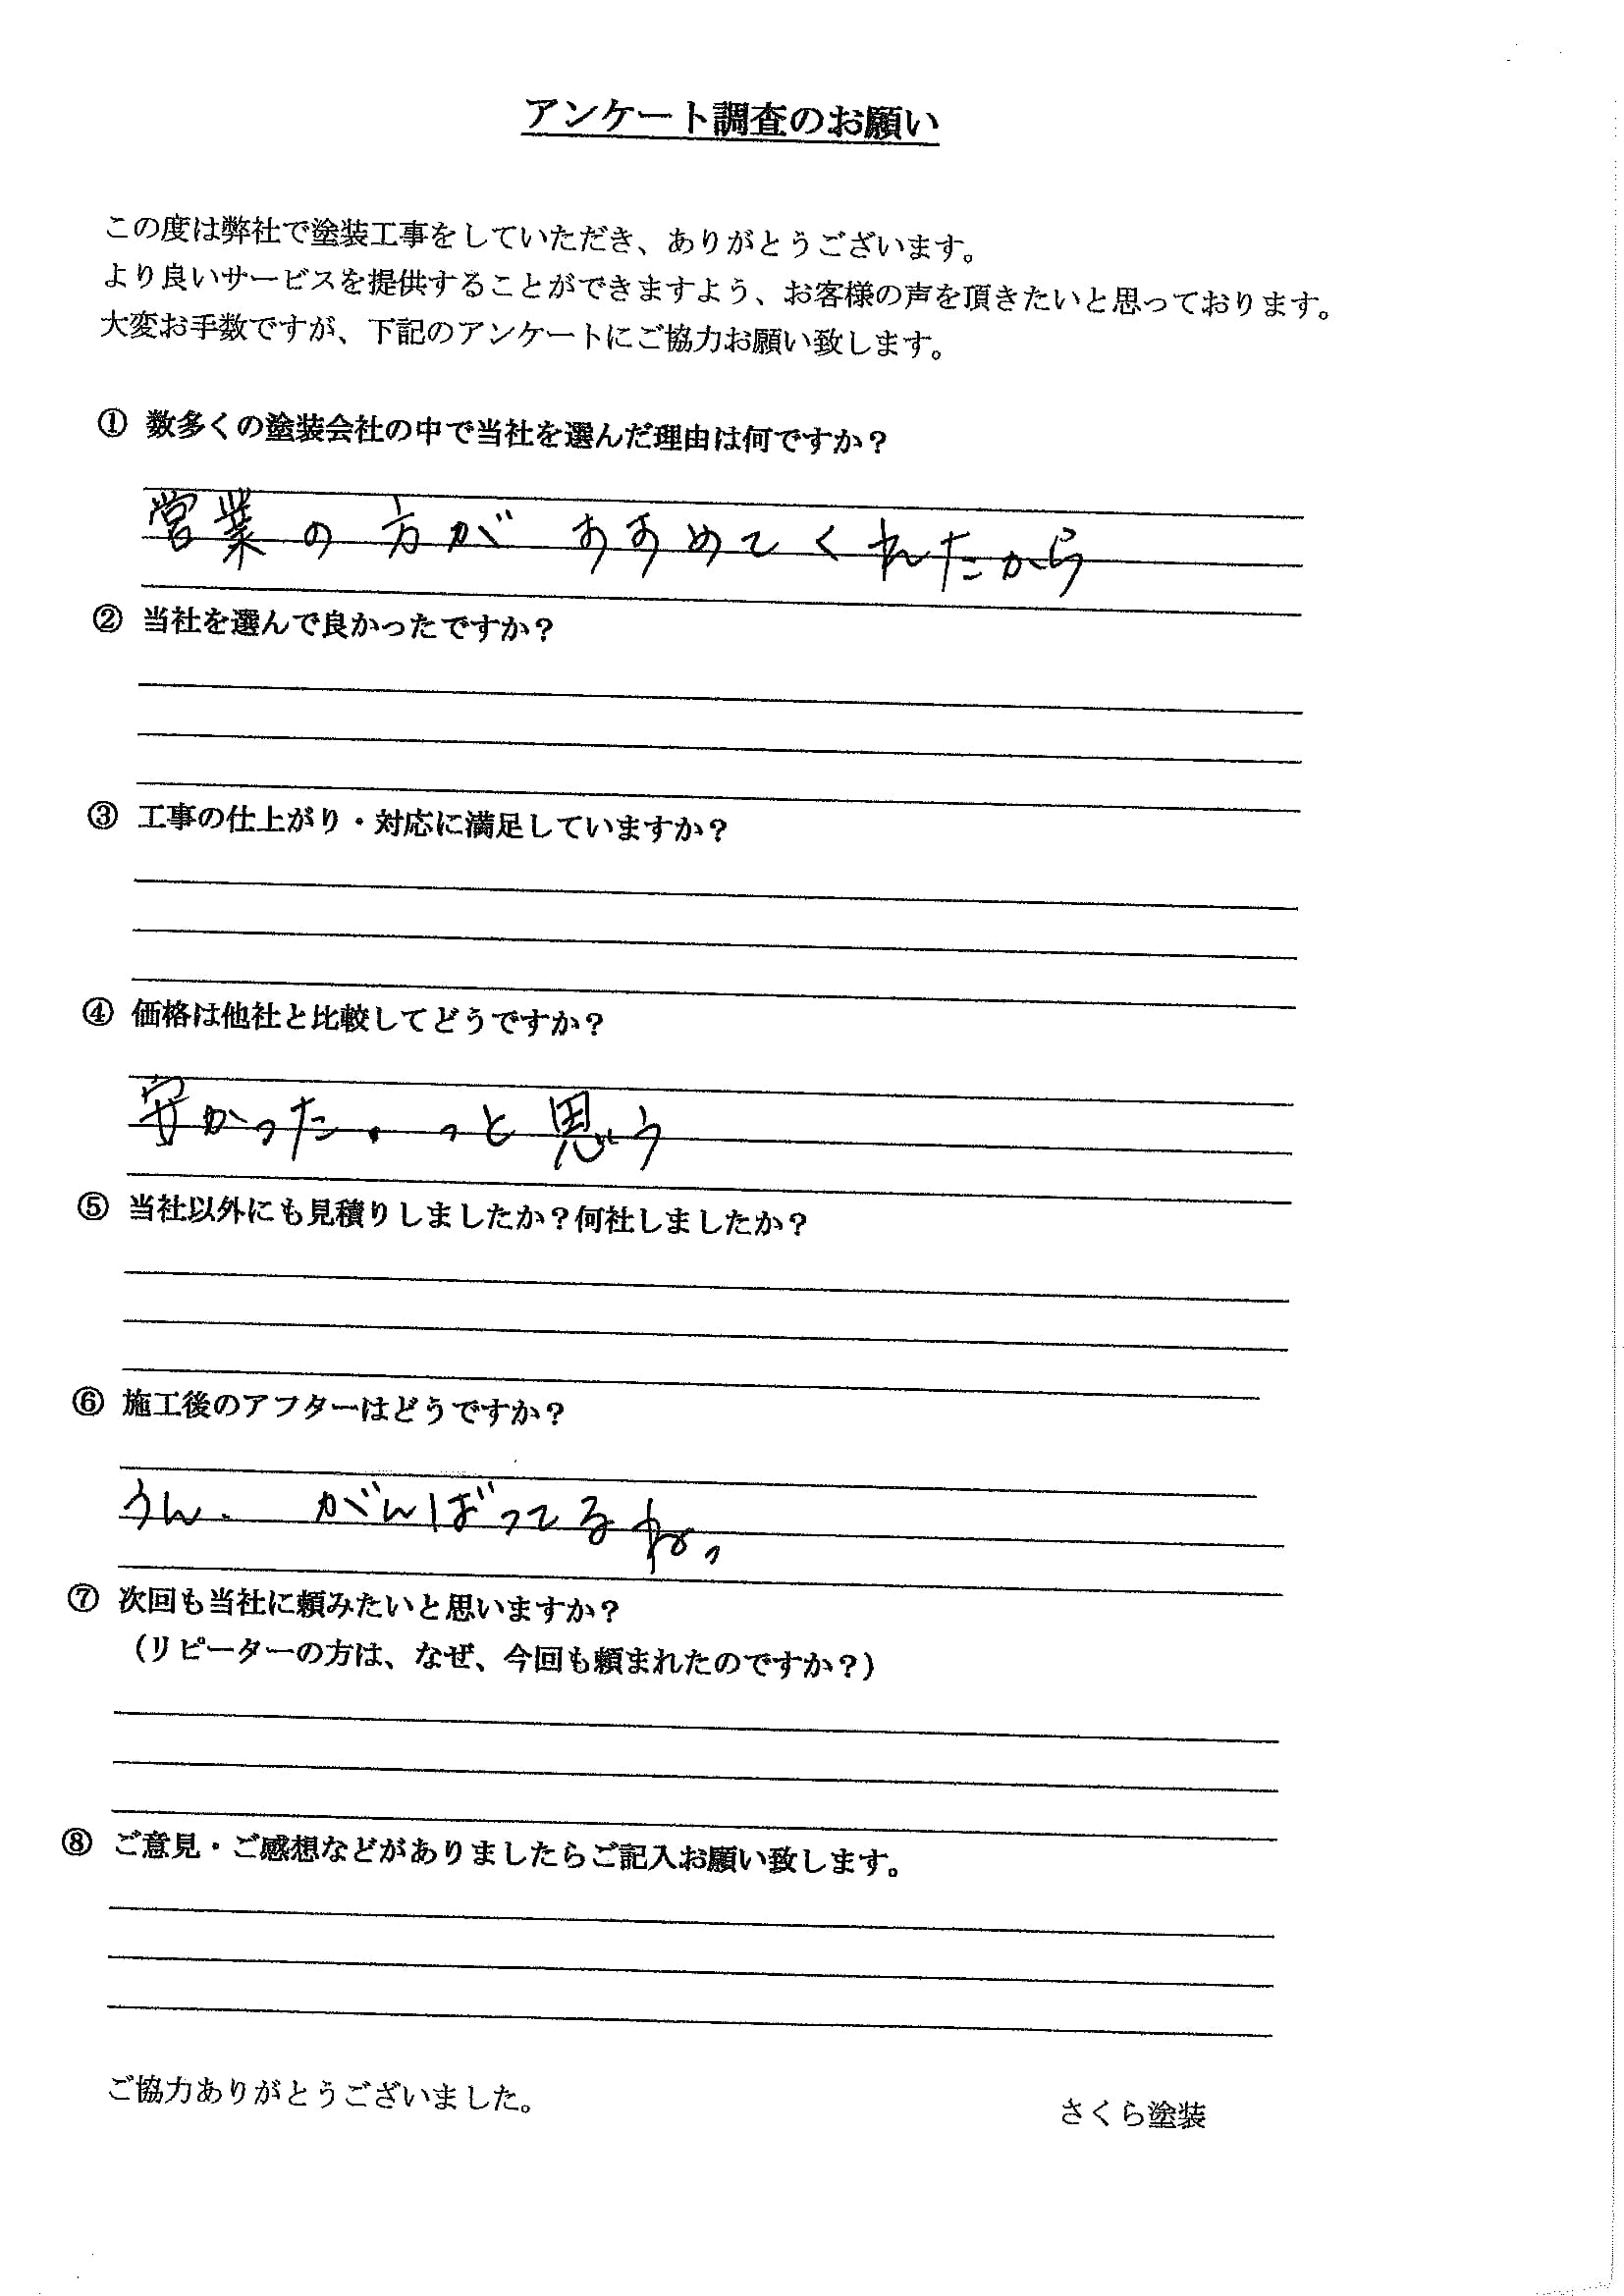 アンケート調査のお願い
この度は弊社で塗装工事をしていただき、ありがとうございます。
より良いサービスを提供することができますよう、お客様の声を頂きたいと思っております。
大変お手数ですが、下記のアンケートにご協力お願い致します。
① 数多くの塗装会社の中で当社を選んだ理由は何ですか？
営業の方がすすめてくれたから
② 当社を選んで良かったですか？
③ 工事の仕上がり・対応に満足していますか？
④ 価格は他社と比較してどうですか？
安かった・っと思う
⑤ 当社以外にも見積りしましたか？何社しましたか？
⑥ 施工後のアフターはどうですか？
うん、がんばってるね。
⑦ 次回も当社に頼みたいと思いますか？
（リピーターの方は、なぜ、今回も頼まれたのですか？）
⑧ ご意見・ご感想などがありましたらご記入お願い致します。
ご協力ありがとうございました。
さくら塗装